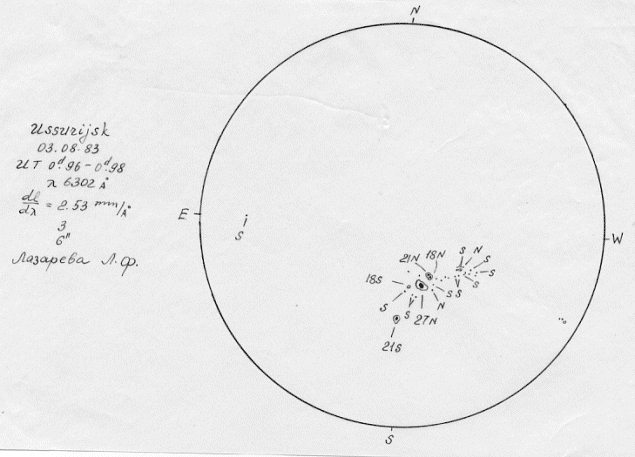 N
Ussurijsk
03.08.83
UT 0.ᵈ96 – 0.ᵈ98
λ 6302 Å
dl/dλ = 2.53 mm/Å
3
6"
Лазарева Л.Ф.
E
S
W
S N
S
S
S
21N 18N
18S
S S
S
S
27N
N
21S
S